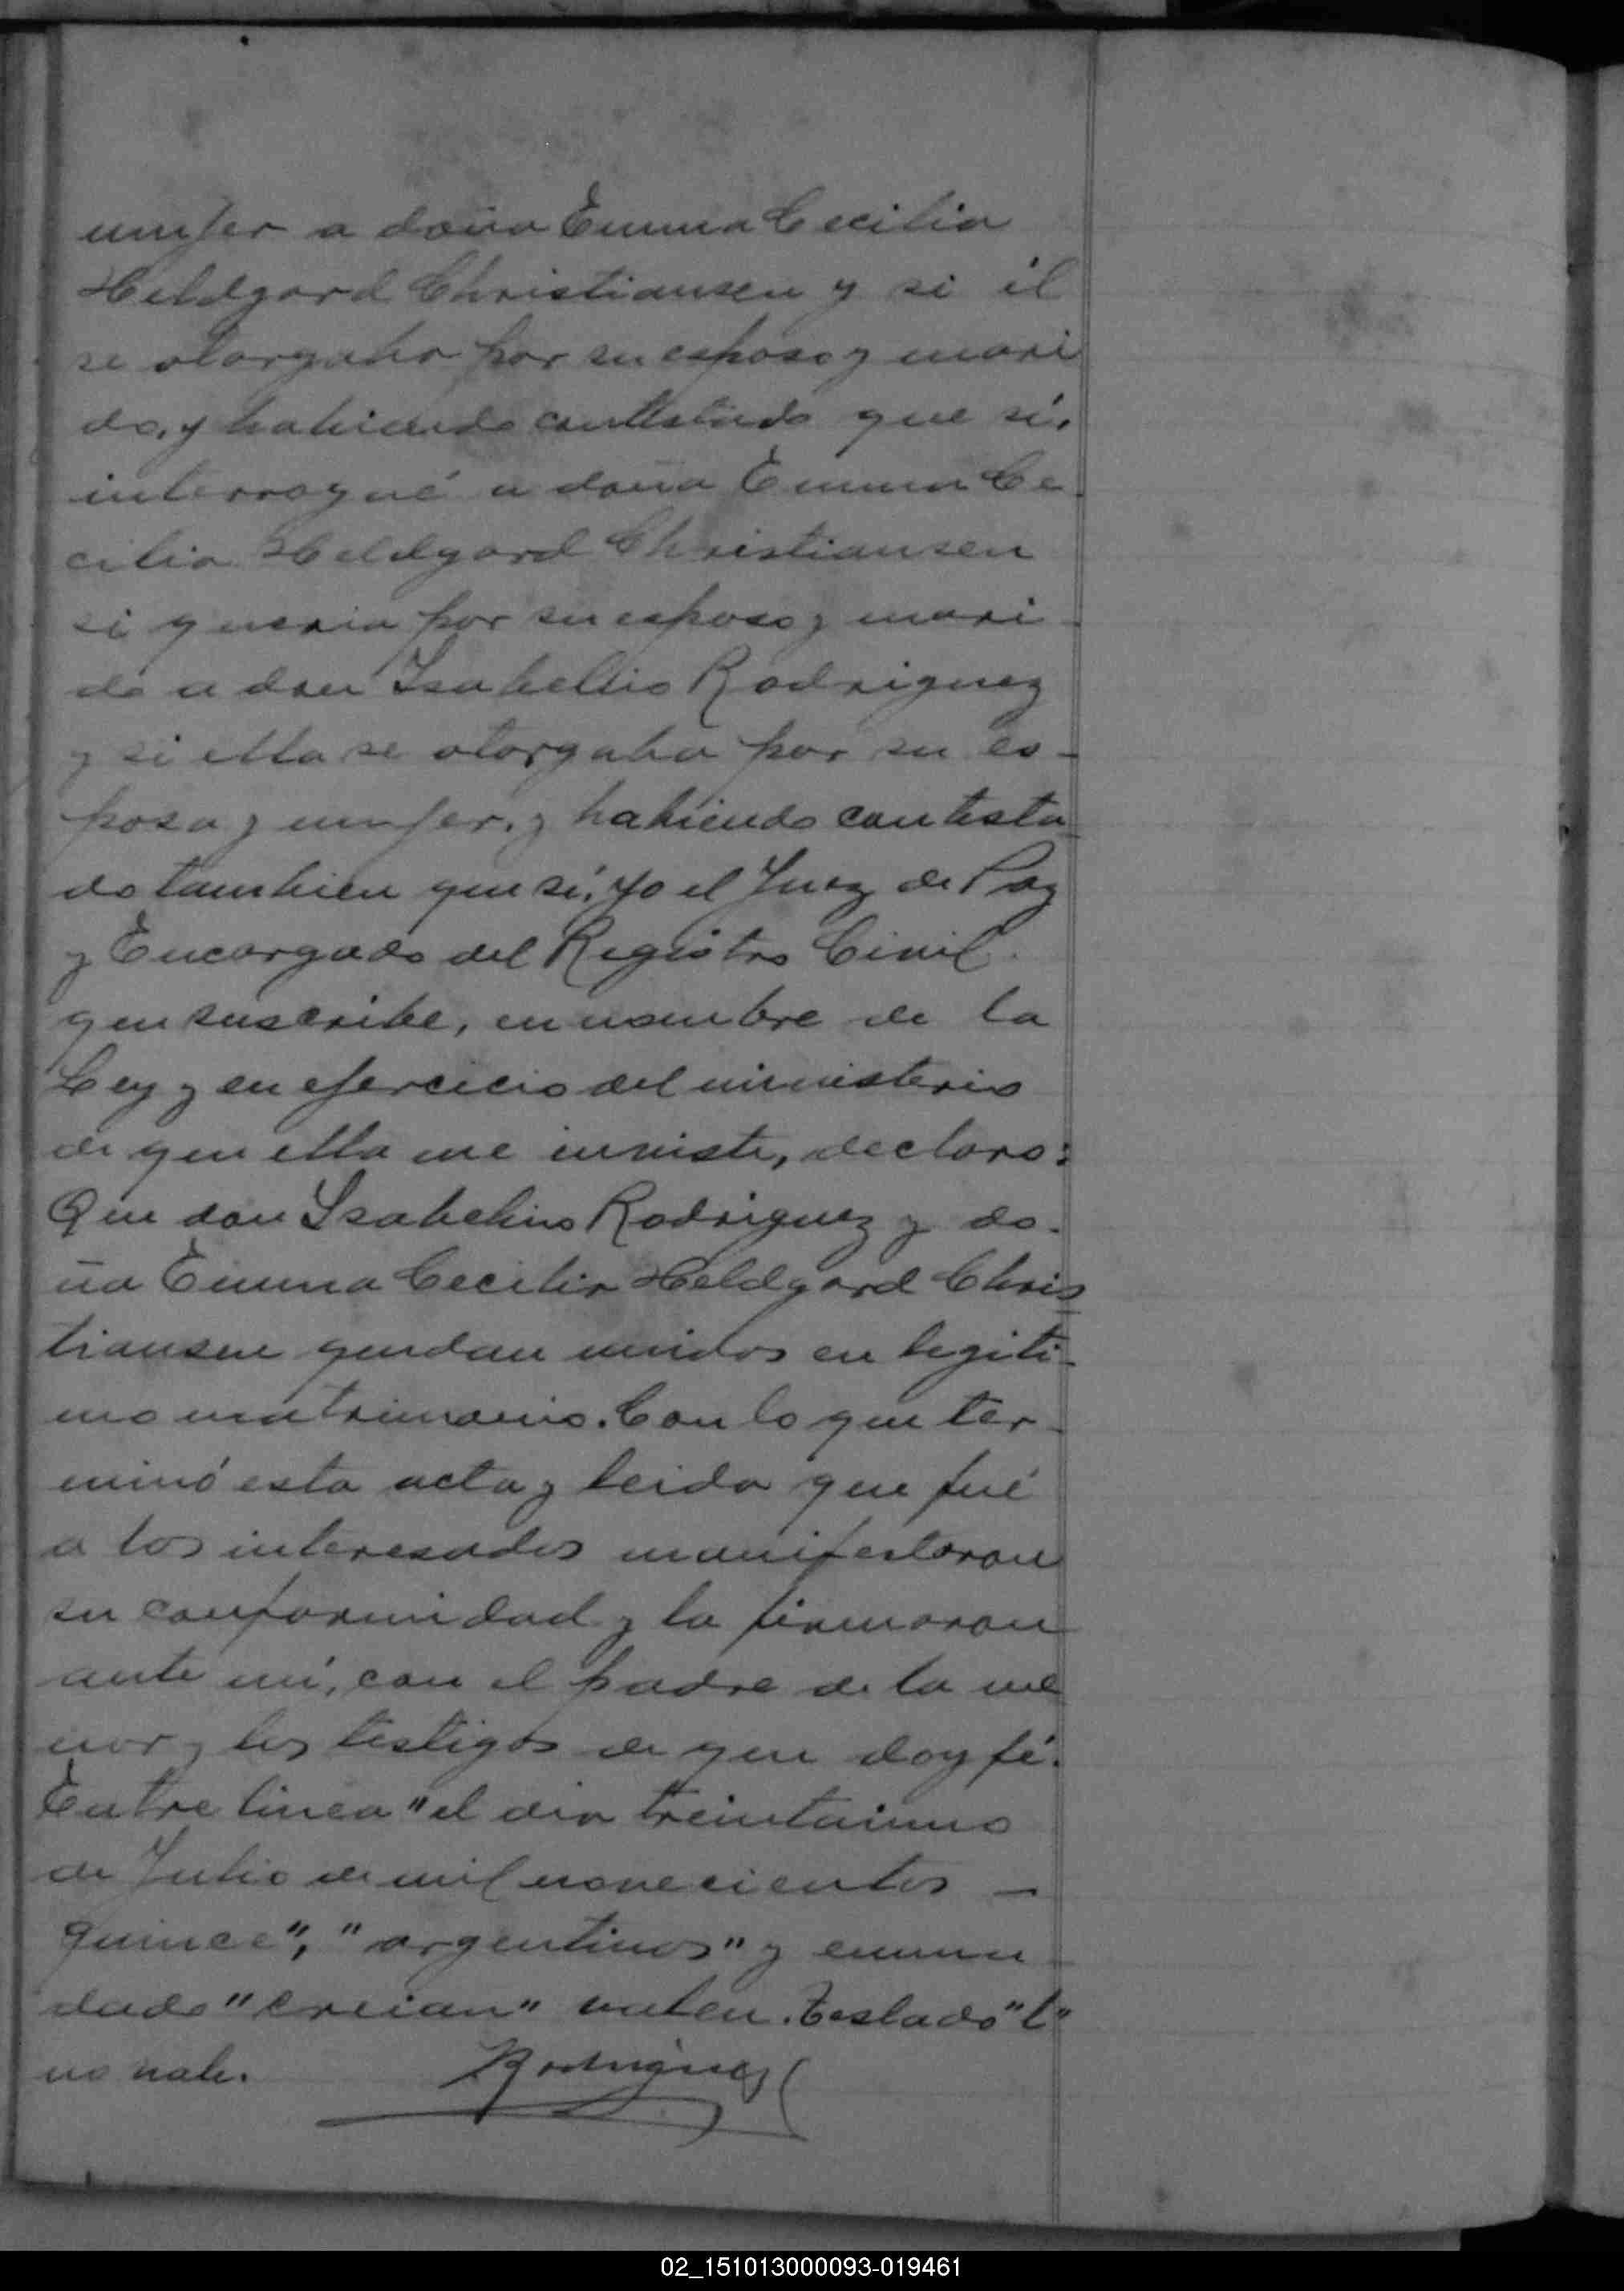 mujer a doña Emma Cecilia
Heldgard Christiansen y si él
se otorgaba por su esposo y mari
do, y habiendo contestado que sí,
interrogué a doña Emma Ce-
cilia Heldgard Christiansen
si queria por su esposo y mari-
do a don Isabelino Rodriguez
y si ella se otorgaba por su es-
posa y mujer, y habiendo contesta-
do tambien que sí, yo el Juez de Paz
y Encargado del Registro Civil
que suscribe, en nombre de la
Ley y en ejercicio del ministerio
de que ella me inviste, declaro:
Que don Isabelino Rodriguez y do-
ña Emma Cecilia Heldgard Chris
tiansen quedan unidos en legiti-
mo matrimonio. Con lo que ter-
minó esta acta y leida que fué
a los interesados manifestaron
su conformidad y la firmaron
ante mí, con el padre de la me
nor y los testigos de que doy fé.
Entre linea "el dia treintaiuno
de Julio de mil novecientos —
quince", "argentinos" y enmen-
dado "creian" valen. Testado "l"
no vale. Rodriguez
02_151013000093-019461